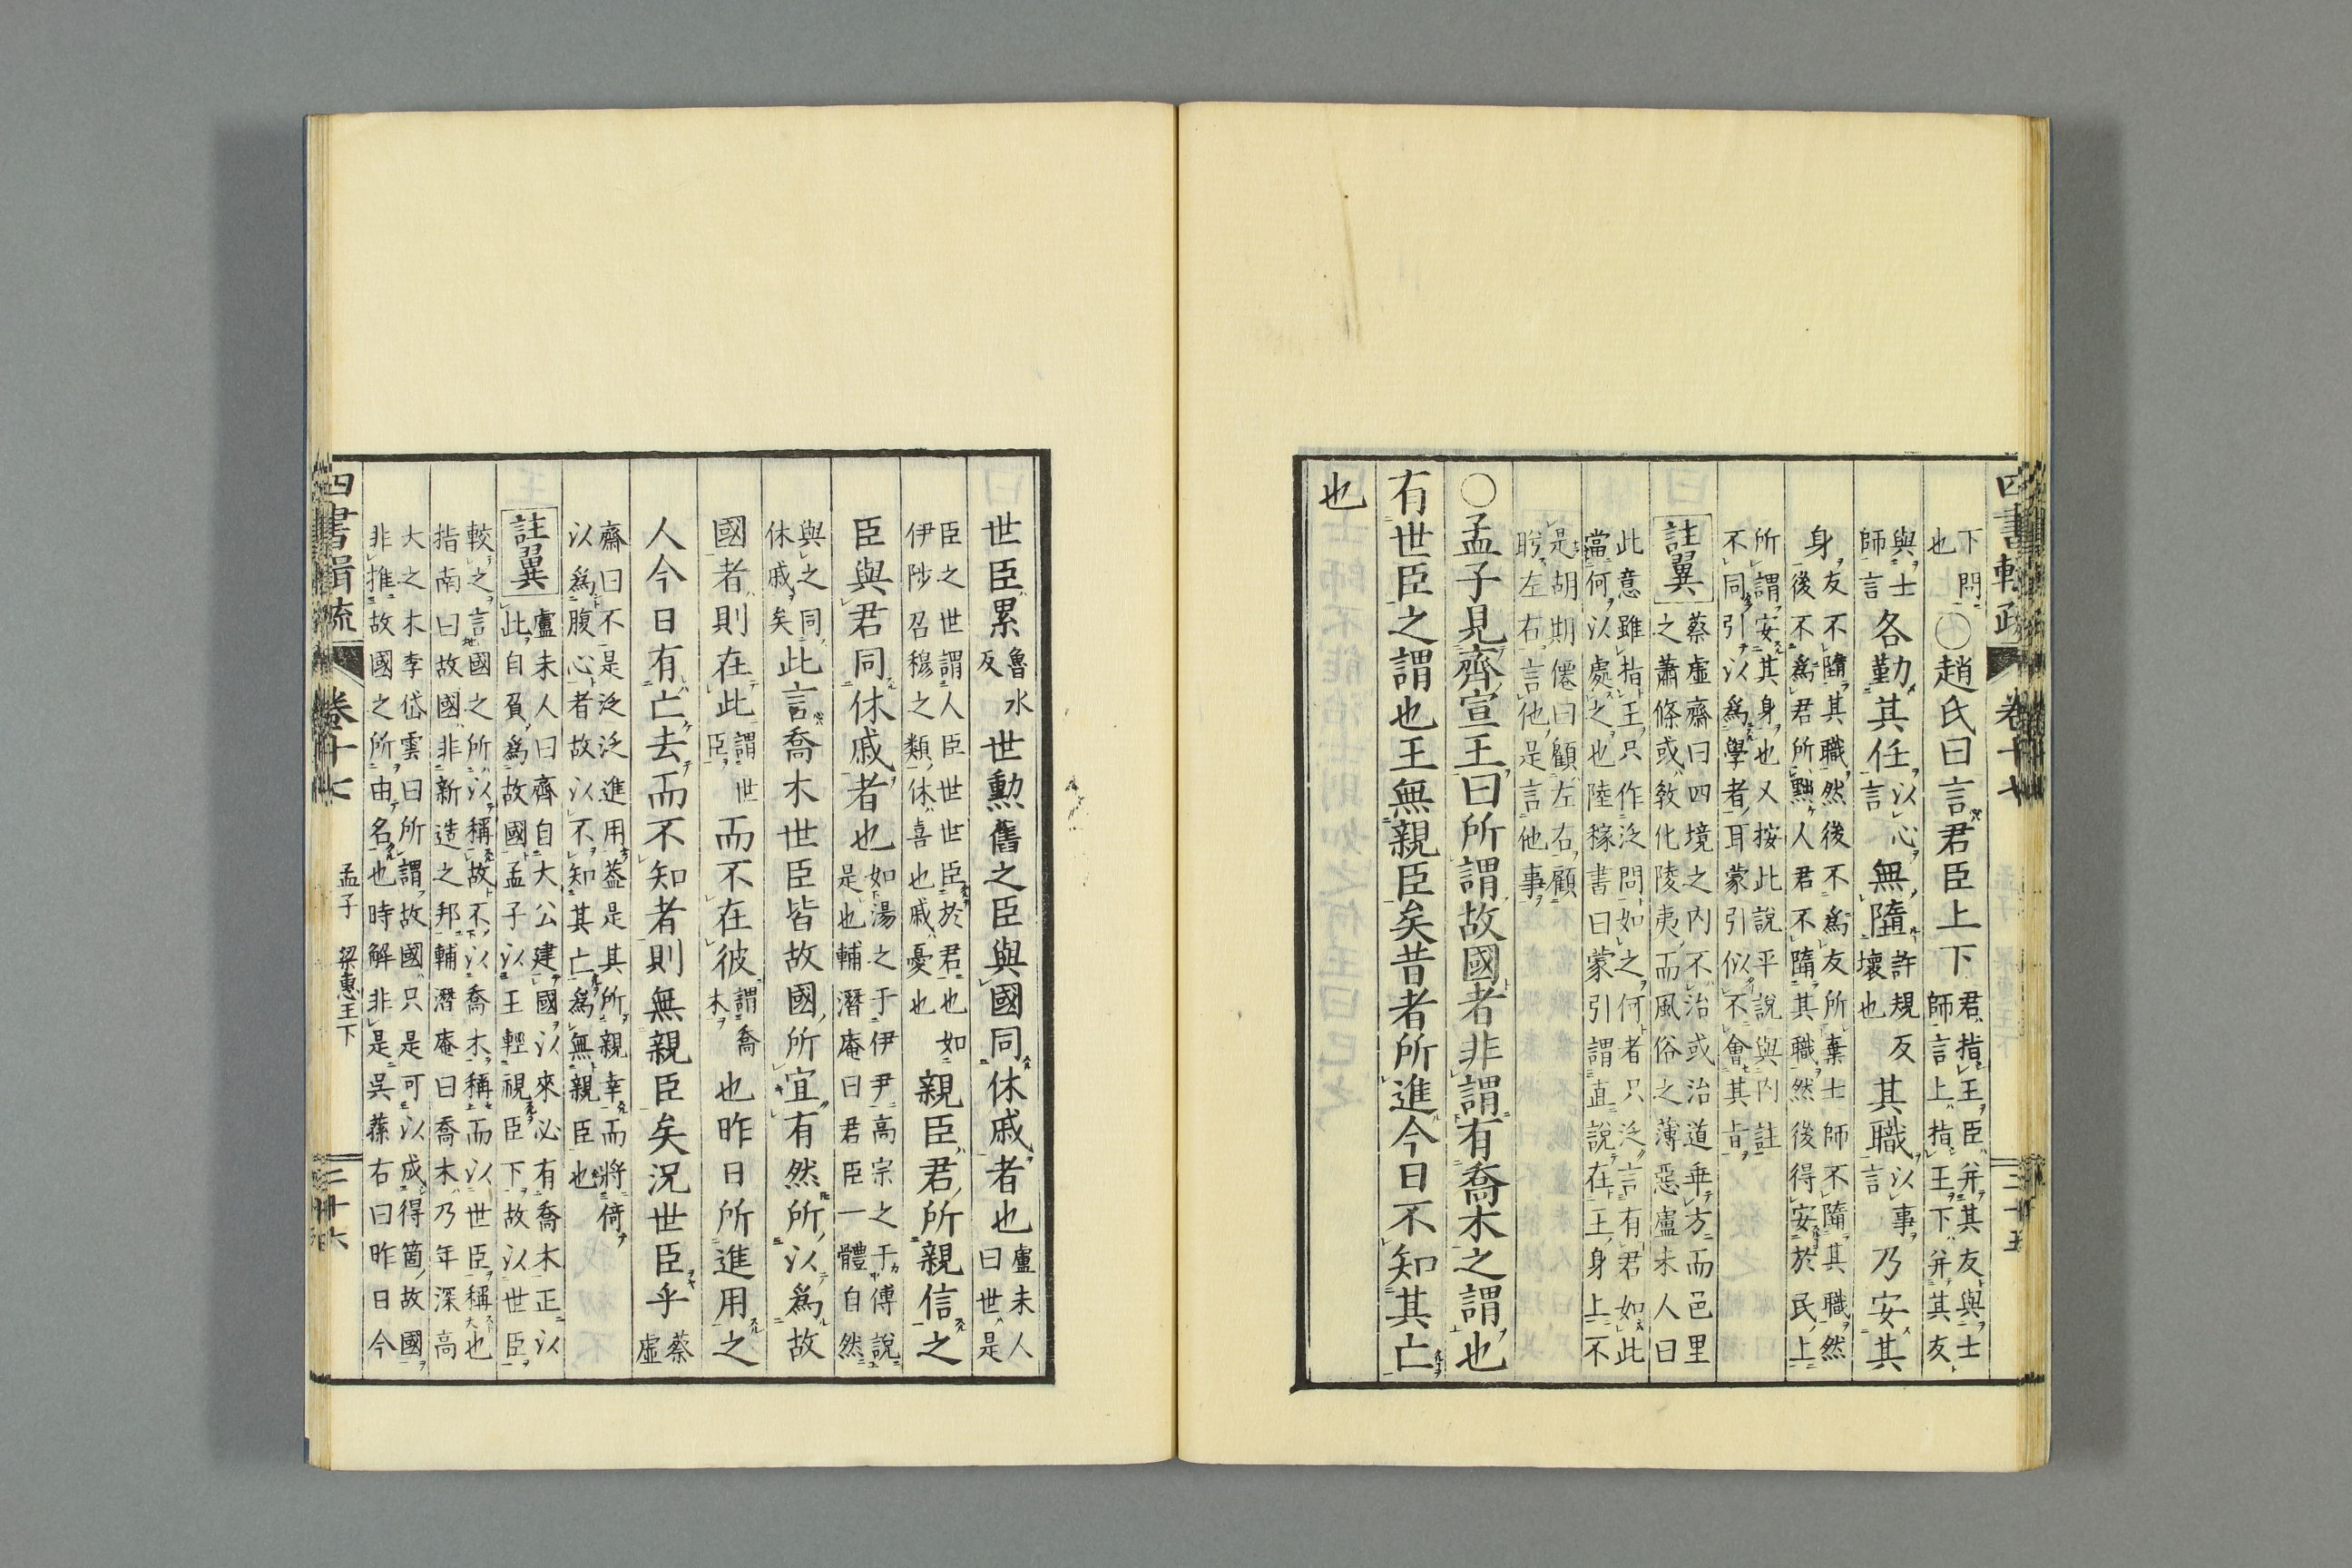 四書輯疏 卷十七 三十五
下問也○趙氏曰言君臣上下君指王臣并其友與士師言上指王下并其友
與士師言各勤其任以心言無隳許規反壞也其職以事言乃安其
身友不隳其職然後不爲友所棄士師不隳其職然後不爲君所黜人君不隳其職然後得安於民上
所謂安其身也又按此說平說與內註不同引以爲學者耳蒙引似不會其旨
註翼蔡虛齋曰四境之內不治或治道乖方而邑里之蕭條或教化陵夷而風俗之薄惡盧未人曰
此意雖指王只作泛問如之何者只泛言有君如此當何以處之也陸稼書曰蒙引謂直說在王身上不
是胡期僊曰顧左右顧眄左右言他是言他事
○孟子見齊宣王曰所謂故國者非謂有喬木之謂也
有世臣之謂也王無親臣矣昔者所進今日不知其亡
也
世臣累魯水反世勲舊之臣與國同休戚者也盧未人曰世是
臣之世謂人臣世世臣於君也如伊陟召穆之類休喜也戚憂也親臣君所親信之
臣與君同休戚者也如湯之于伊尹高宗之于傅說是也輔潛庵曰君臣一體自然
與之同休戚矣此言喬木世臣皆故國所宜有然所以爲故
國者則在此謂世臣而不在彼謂喬木也昨日所進用之
人今日有亡去而不知者則無親臣矣況世臣乎蔡虛
齋曰不是泛泛進用葢是其所親幸而將倚以爲腹心者故以不知其亡爲無親臣也
註翼盧未人曰齊自大公建國以來必有喬木正以此自負爲故國孟子以王輕視臣下故以世臣
較之言國之所以稱故不以喬木稱而以世臣稱也指南曰故國非新造之邦輔潛庵曰喬木乃年深高
大之木李岱雲曰所謂故國只是可以成得箇故國非推故國之所由名也時解非是吳蓀右曰昨日今
四書輯疏 卷十七 孟子 梁惠王下 三十六